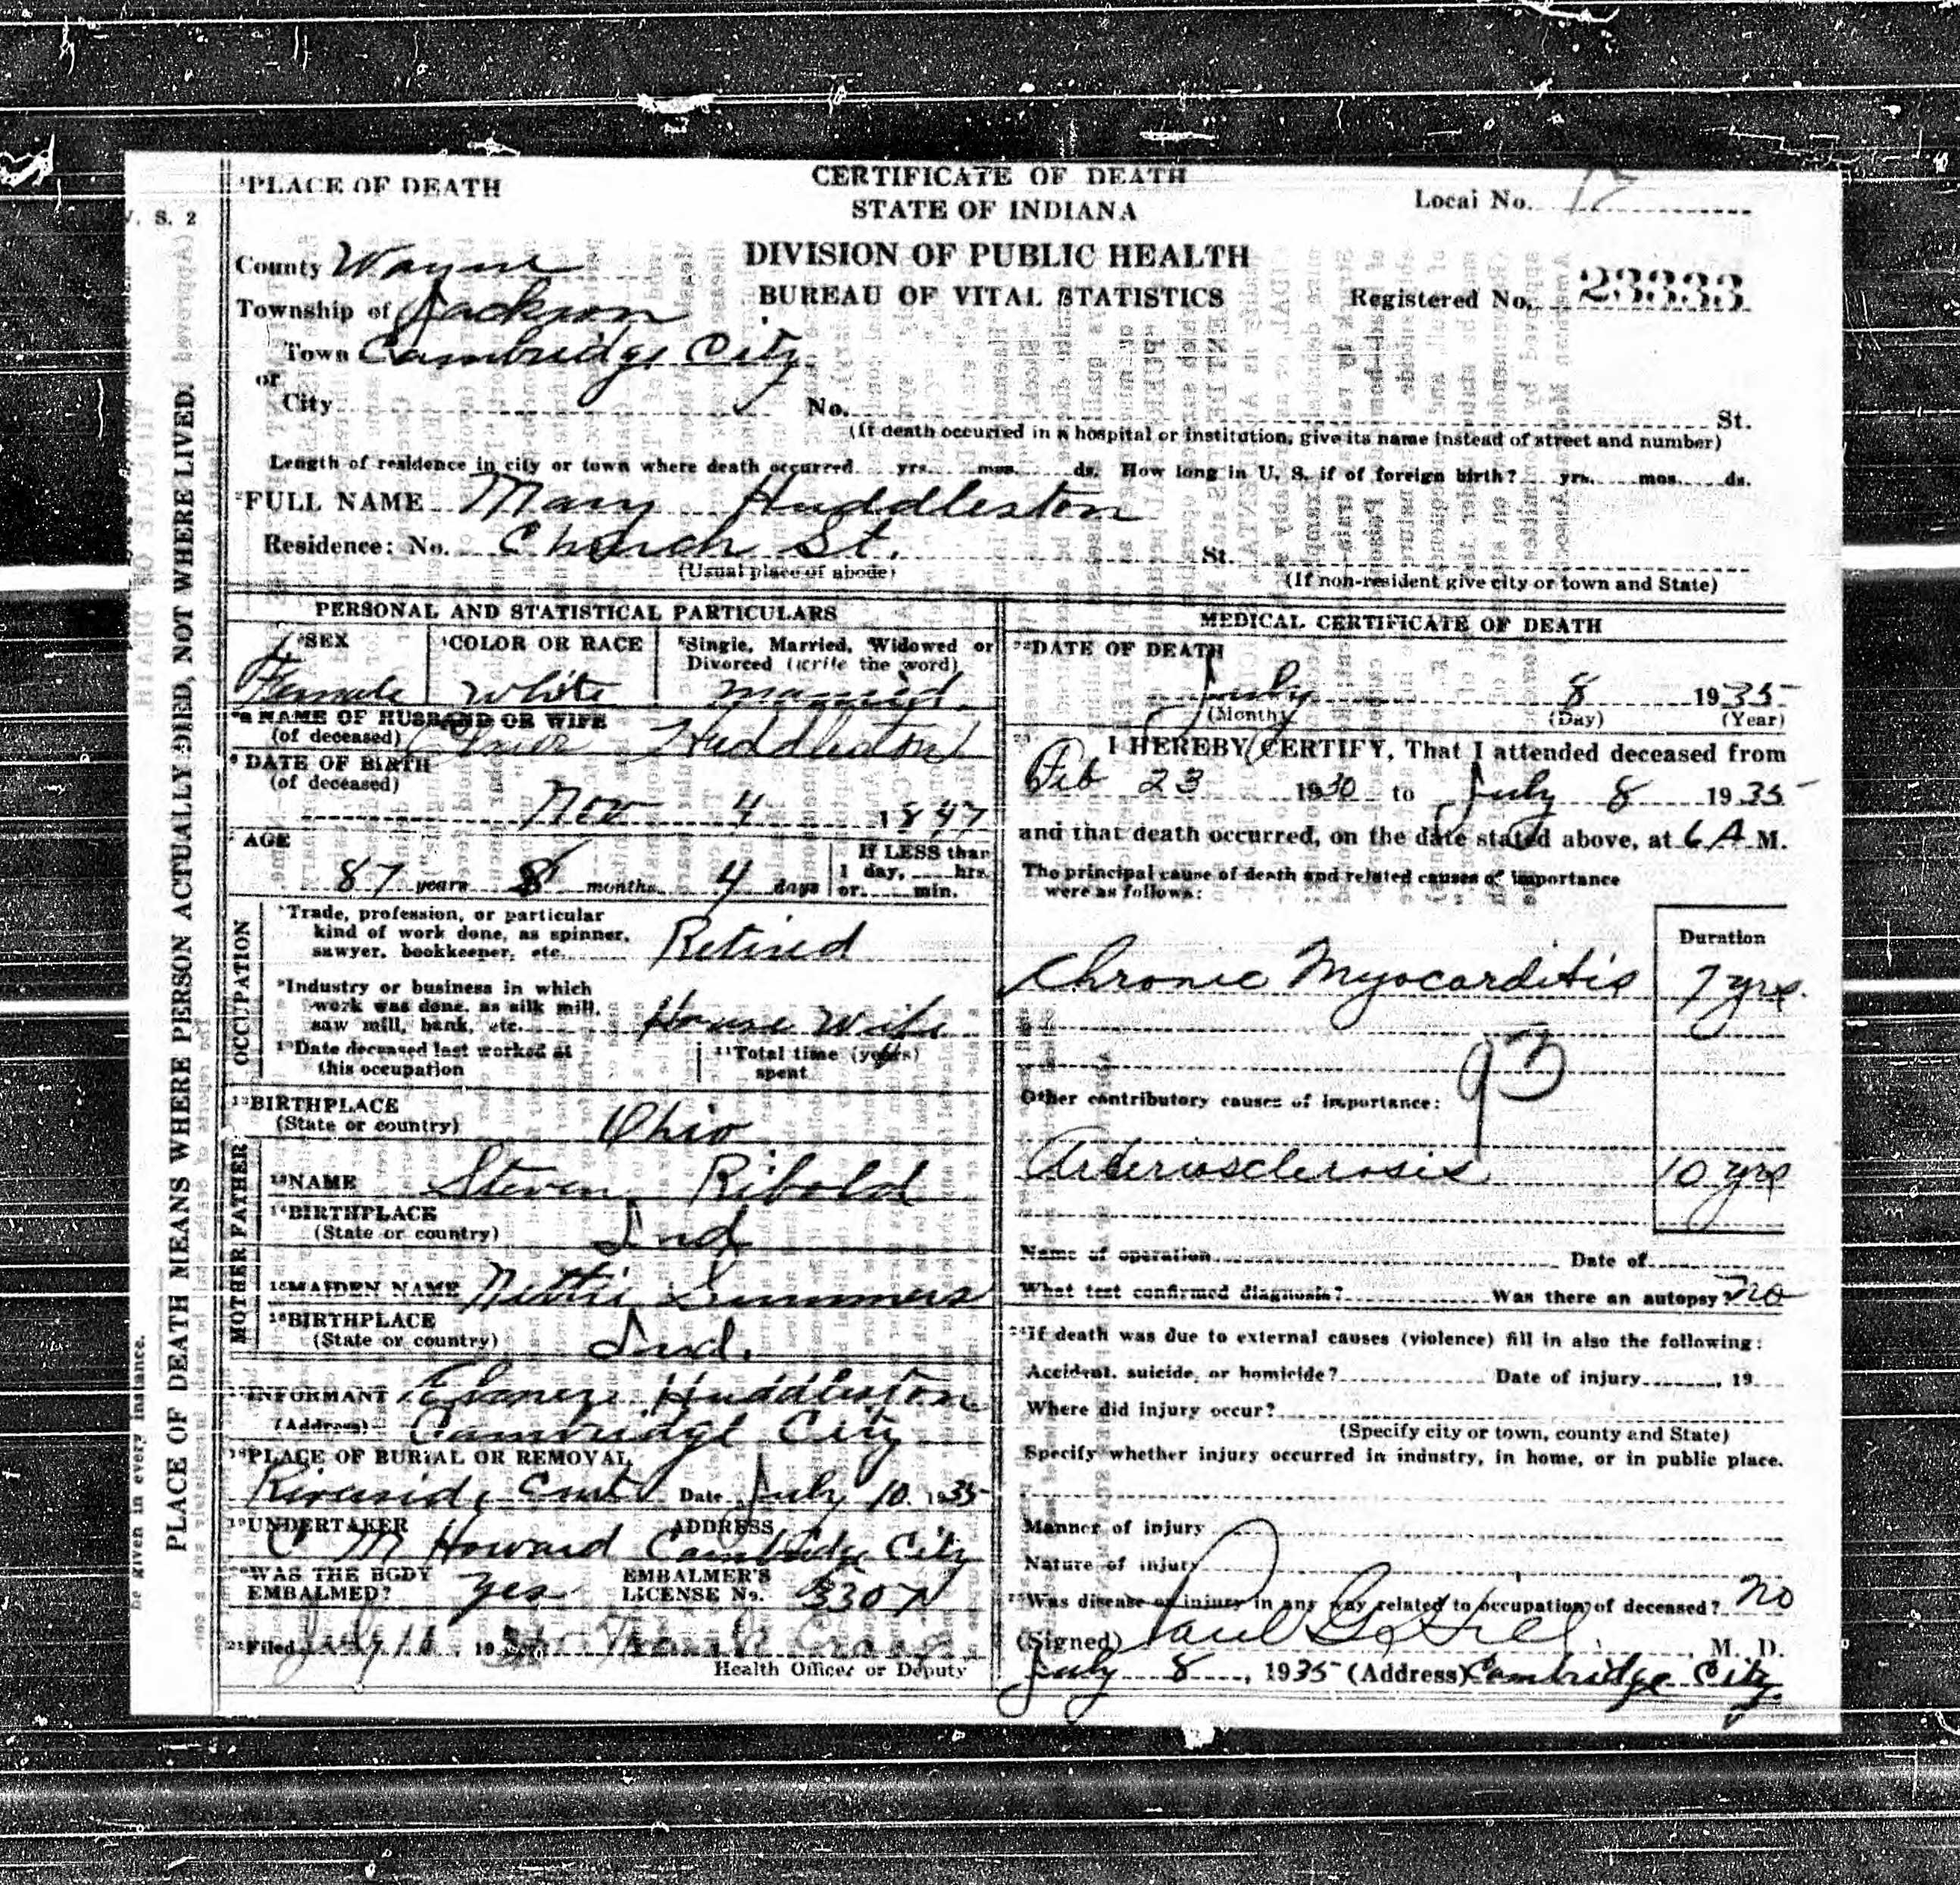 PLACE OF DEATH
CERTIFICATE OF DEATH
STATE OF INDIANA
Local No. 17
V. S. 2
DIVISION OF PUBLIC HEALTH
BUREAU OF VITAL STATISTICS
Registered No. 23333
County Wayne
Township of Jackson
Town Cambridge City
or
City No. St.
(If death occurred in a hospital or institution, give its name instead of street and number)
Length of residence in city or town where death occurred yrs. mos. ds. How long in U. S. if of foreign birth? yrs. mos. ds.
2FULL NAME Mary Huddleston
Residence: No. Church St. St.
(Usual place of abode)
(If non-resident give city or town and State)
PERSONAL AND STATISTICAL PARTICULARS
3SEX 4COLOR OR RACE 5Single, Married, Widowed or
Divorced (write the word)
Female White married
5a NAME OF HUSBAND OR WIFE
(of deceased) Huddleston
6 DATE OF BIRTH
(of deceased)
Nov 4 1847
7 AGE
If LESS than
1 day, hrs.
87 years 8 months 4 days or min.
OCCUPATION
8Trade, profession, or particular
kind of work done, as spinner,
sawyer, bookkeeper, etc. Retired
9Industry or business in which
work was done, as silk mill,
saw mill, bank, etc. House Wife
10Date deceased last worked at
this occupation
11Total time (years)
spent
12BIRTHPLACE
(State or country) Ohio
FATHER
13NAME Steven Ribold
14BIRTHPLACE
(State or country) Ind
MOTHER
15MAIDEN NAME Nettie Summers
16BIRTHPLACE
(State or country) Ind.
17INFORMANT Huddleston
(Address) Cambridge City
18PLACE OF BURIAL OR REMOVAL
Riverside Date July 10 1935
19UNDERTAKER ADDRESS
C M Howard Cambridge City
20WAS THE BODY
EMBALMED? yes
EMBALMER'S
LICENSE No. 3307
21Filed July 10, 19 Craig
Health Officer or Deputy
MEDICAL CERTIFICATE OF DEATH
22DATE OF DEATH
July 8 1935
(Month) (Day) (Year)
I HEREBY CERTIFY, That I attended deceased from
Feb 23 1930 to July 8 1935
and that death occurred, on the date stated above, at 6 A M.
The principal cause of death and related causes of importance
were as follows:
Duration
Chronic Myocarditis 7 yrs.
93
Other contributory causes of importance:
Arteriosclerosis 10 yrs
Name of operation Date of
What test confirmed diagnosis? Was there an autopsy? no
24If death was due to external causes (violence) fill in also the following:
Accident, suicide, or homicide? Date of injury , 19
Where did injury occur?
(Specify city or town, county and State)
Specify whether injury occurred in industry, in home, or in public place.
Manner of injury
Nature of injury
25Was disease or injury in any way related to occupation of deceased? no
(Signed) Paul , M. D.
July 8, 1935 (Address) Cambridge City
PLACE OF DEATH MEANS WHERE PERSON ACTUALLY DIED, NOT WHERE LIVED.
be given in every instance.